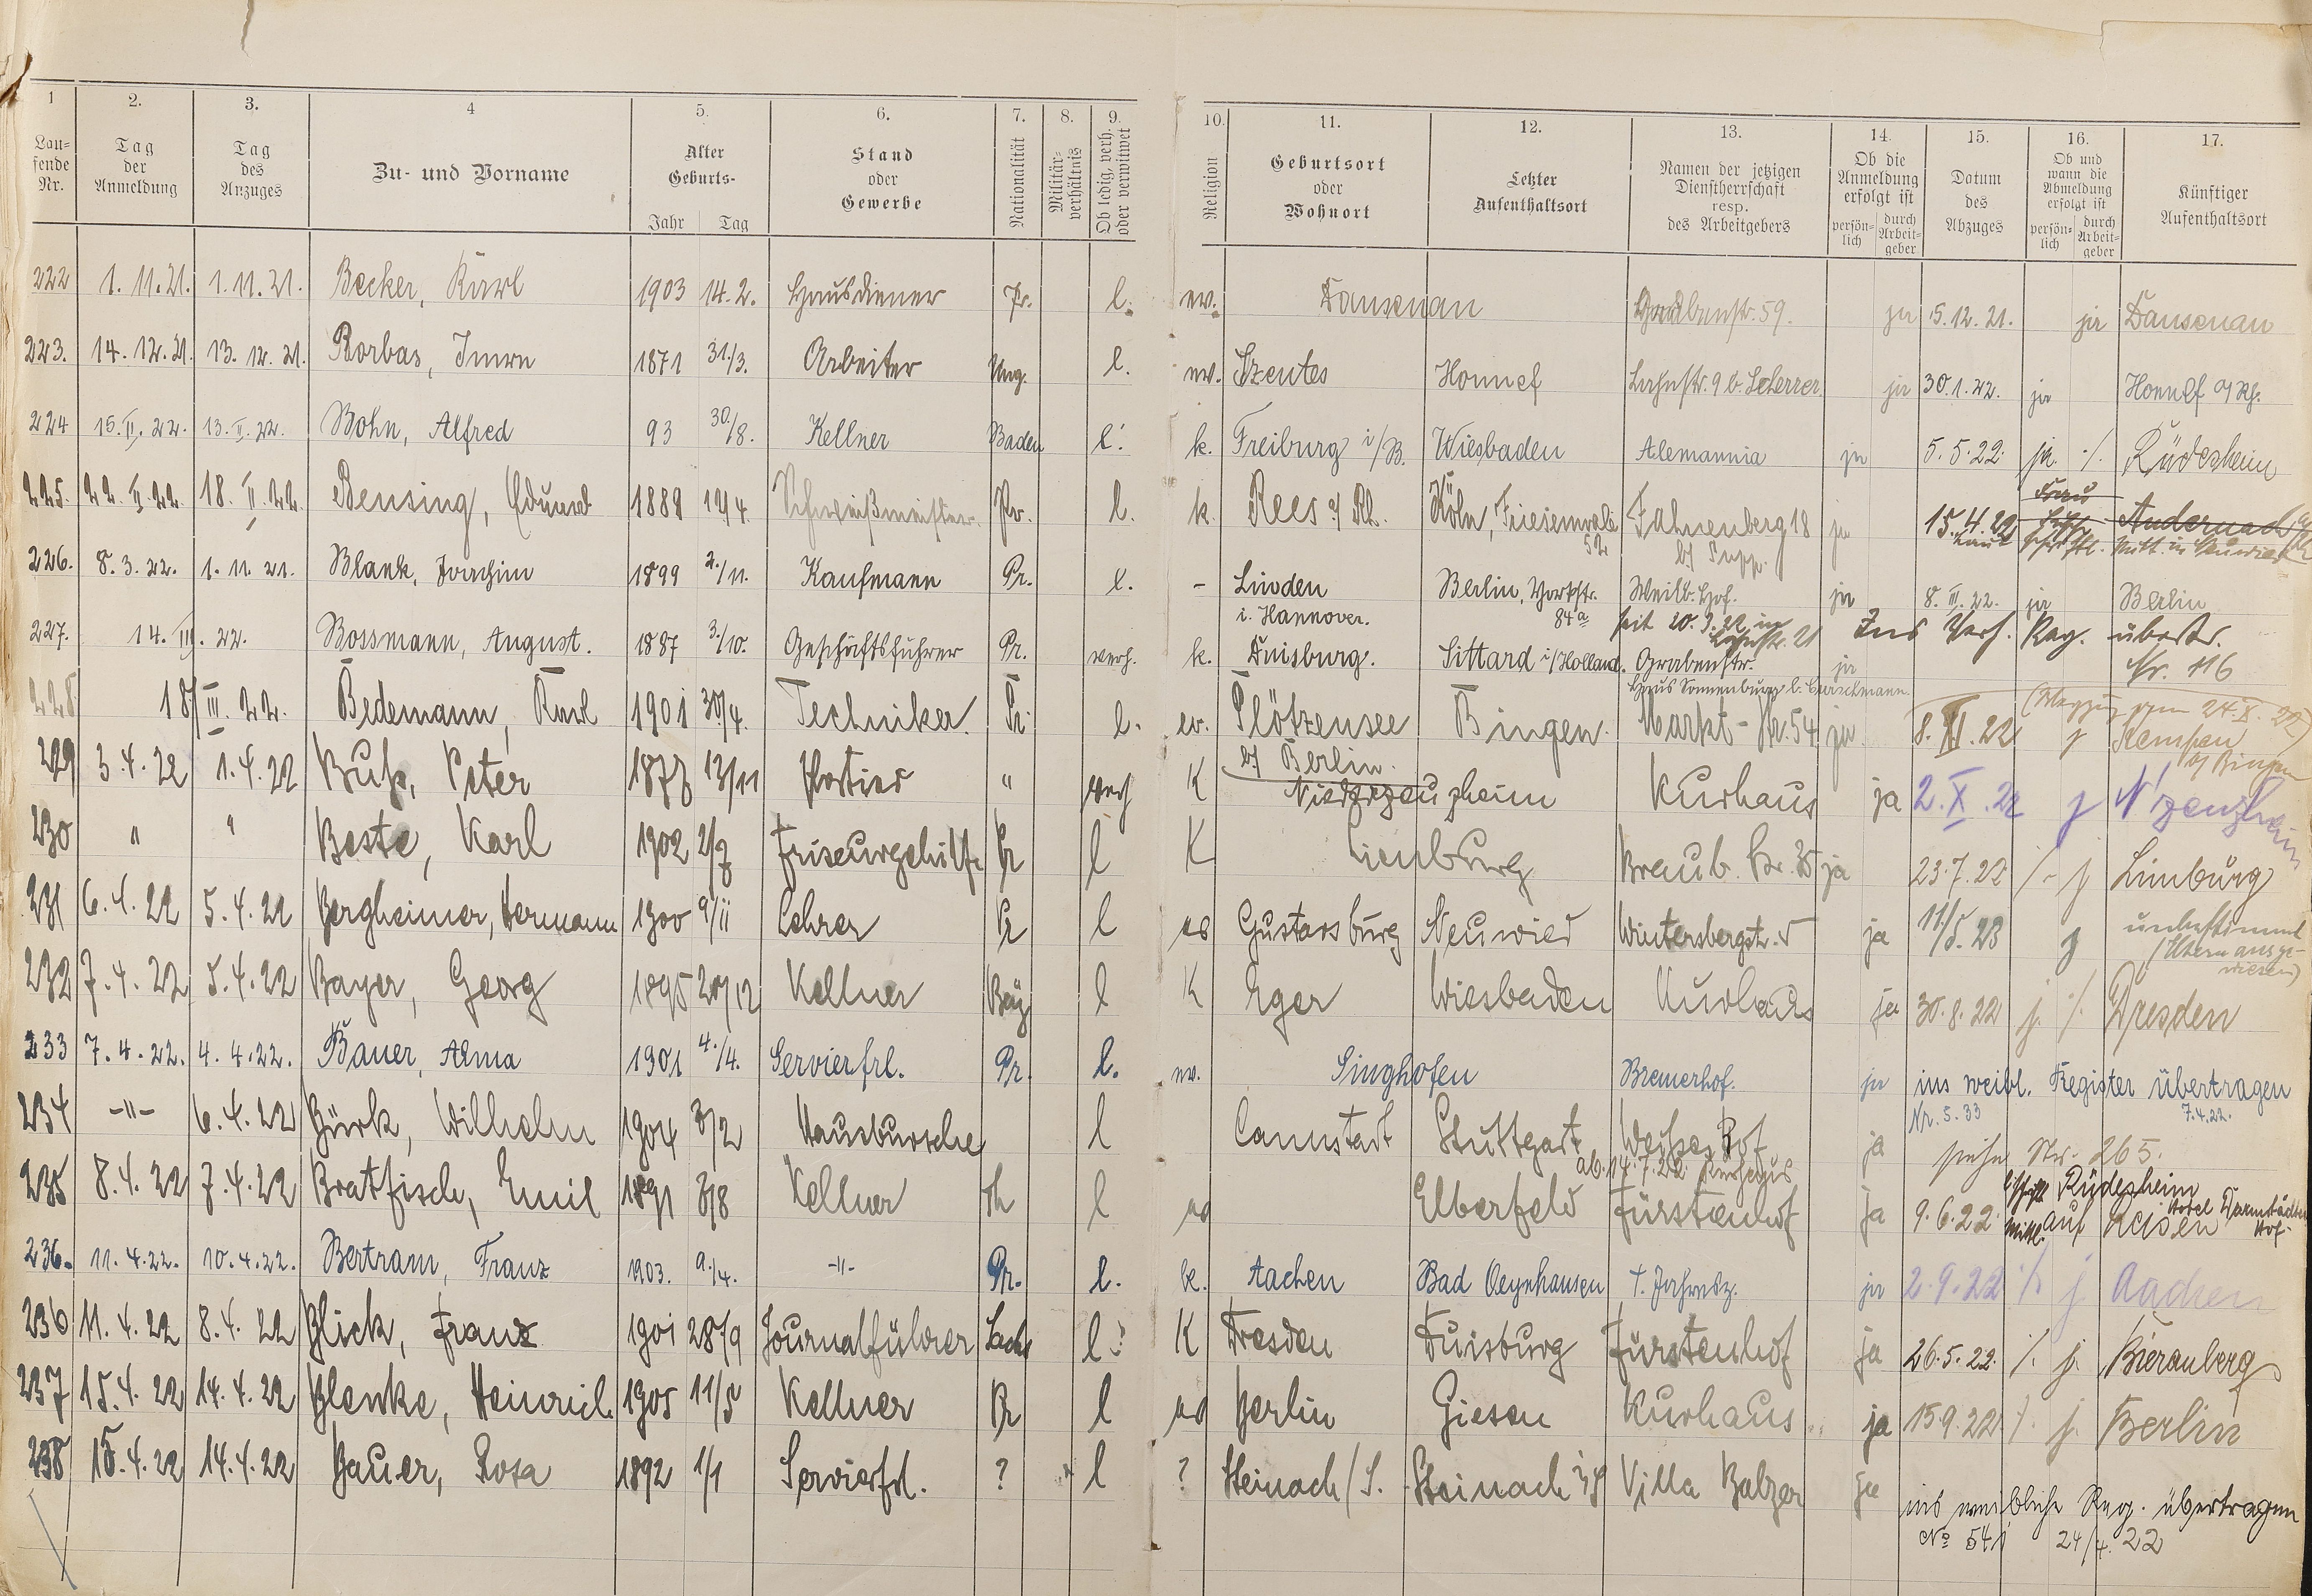 1 2. 3. 4 5. 6. 7. 8. 9. 10. 11. 12. 13. 14. 15. 16. 17.
Lau-
fende
Nr.
Tag
der
Anmeldung
Tag
des
Anzuges
Zu- und Vorname
Alter
Geburts-
Jahr Tag
Stand
oder
Gewerbe
Nationalität
Militär-
verhältnis
Ob ledig, verh.
oder verwitwet
Religion
Geburtsort
oder
Wohnort
Letzter
Aufenthaltsort
Namen der jetzigen
Dienstherrschaft
resp.
des Arbeitgebers
Ob die
Anmeldung
erfolgt ist
persön-
lich
durch
Arbeit-
geber
Datum
des
Abzuges
Ob und
wann die
Abmeldung
erfolgt ist
persön-
lich
durch
Arbeit-
geber
Künftiger
Aufenthaltsort
222 1.11.21. 1.11.21. Becker, Karl 1903 14.2. Hausdiener Pr. l. ev. Dausenau Grabenstr. 59. ja 5.12.21. ja Dausenau
223. 14.12.21. 13.12.21. Korbas, Imre 1871 31./3. Arbeiter Ung. l. ev. Szentes Honnef Lahnstr. 9 b. Scherrer ja 30.1.22. ja Honnef a/Rh.
224 15.II.22. 13.II.22. Bohn, Alfred 93 30/8. Kellner Baden l. k. Freiburg i/B. Wiesbaden Alemannia ja 5.5.22. ja ./. Rüdesheim
225. 22.II.22. 18.II.22. Bensing, Eduard 1888 12/4. Schweißmeister Pr. l. k. Rees a/Rh. Köln, Friesenwall Fahnenberg 18 ja 15.4.22 Frau Andernach a/Rh
52 b/ Supp. laut schriftl. Mitt. in Neuwied
226. 8.3.22. 1.11.21. Blank, Joachim 1899 2./11. Kaufmann Pr. l. - Linden Berlin, Yorkstr. Weilb. Hof. ja 8.III.22. ja Berlin
i. Hannover. 84a seit 20.3.22 in Lahnstr. 21 Ins Verh. Reg. übertr.
227. 14.III.22. Bossmann, August. 1887 3./10. Geschäftsführer Pr. verh. k. Duisburg. Sittard i/Holland. Grabenstr. ja Nr. 116
Haus Sonnenburg b. Curschmann
228 18/III.22. Bedemann, Karl 1901 30/4. Techniker. Pr. l. ev. Plötzensee Bingen. Markt-Str. 54 ja 8.XI.22 j Kempten
b/ Berlin. (Wegzug zum 24.X.22) b/ Bingen
229 3.4.22 1.4.22 Buß, Peter 1877 13/11 Portier " verh K Niederzeuzheim Kurhaus ja 2.X.22 j N'zeuzheim
230 " " Beste, Karl 1902 2/7 Friseurgehilfe Pr l K Limburg Braub. Str. 35 ja 23.7.22 /- j Limburg
231 6.4.22 5.4.22 Bergheimer, Hermann 1900 9/11 Lehrer Pr l ev Gustavsburg Neuwied Wintersbergstr. 5 ja 11./5.23 j unbestimmt
(Eltern ausge-
wiesen)
232 7.4.22 5.4.22 Bayer, Georg 1895 20/12 Kellner Bay l K Eger Wiesbaden Kurhaus ja 30.8.22 j. /. Dresden
233 7.4.22. 4.4.22. Bauer, Alma 1901 4./4. Servierfrl. Pr. l. ev. Singhofen Bremerhof. ja ins weibl. Register übertragen
Nr. 533 7.4.22.
234 -"- 6.4.22 Bürk, Wilhelm 1904 3/2 Hausbursche l Cannstatt Stuttgart Weißes Roß ja siehe Nr. 265.
ab 14.7.22 Kurhaus
235 8.4.22 7.4.22 Bratfisch, Emil 1891 3/8 Kellner Th l ev Elberfeld Fürstenhof ja 9.6.22. auf Reisen
Rüdesheim Hotel Darmstädter Hof.
236. 11.4.22. 10.4.22. Bertram, Franz 1903. 9./4. -"- Pr. l. k. Aachen Bad Oeynhausen ja 2.9.22 /. j Aachen
236 11.4.22 8.4.22 Blick, Franz 1901 28/9 Journalführer Sachs l. K Dresden Duisburg Fürstenhof ja 26.5.22. /. j. Bieranberg
237 15.4.22 14.4.22 Blenke, Heinrich 1905 11/5 Kellner Pr l ev Berlin Giesen Kurhaus ja 15.9.22 /. j. Berlin
238 15.4.22 14.4.22 Bauer, Rosa 1892 1/1 Servierfrl. ? l ? Steinach/S. Steinach Villa Balzer ja ins weibliche Reg. übertragen
No 541 24/4.22